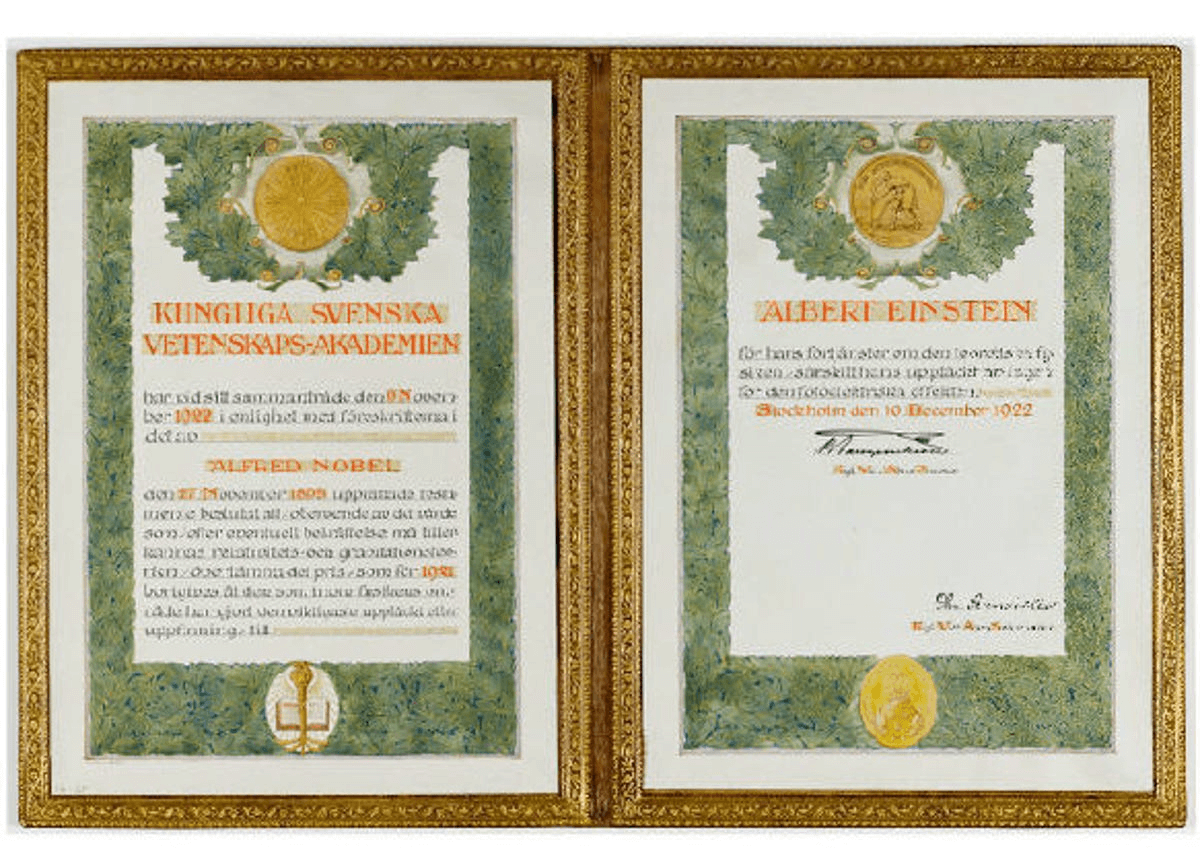 KUNGLIGA SVENSKA
VETENSKAPS-AKADEMIEN
har vid sitt sammanträde den 9 Novem
ber 1922 i enlighet med föreskrifterna i
det av
ALFRED NOBEL
den 27 November 1895 upprättade testa
mente beslutat att, oberoende av det värde
som, efter eventuell bekräftelse må tiller
kännas relativitets- och gravitationsteo
rien, överlämna det pris, som för 1921
bortgives åt den som inom fysikens om
råde har gjort den viktigaste upptäckt eller
uppfinning, till
ALBERT EINSTEIN
för hans förtjänster om den teoretiska fy
siken, särskilt hans upptäckt av lagen
för den fotoelektriska effekten
Stockholm den 10 December 1922